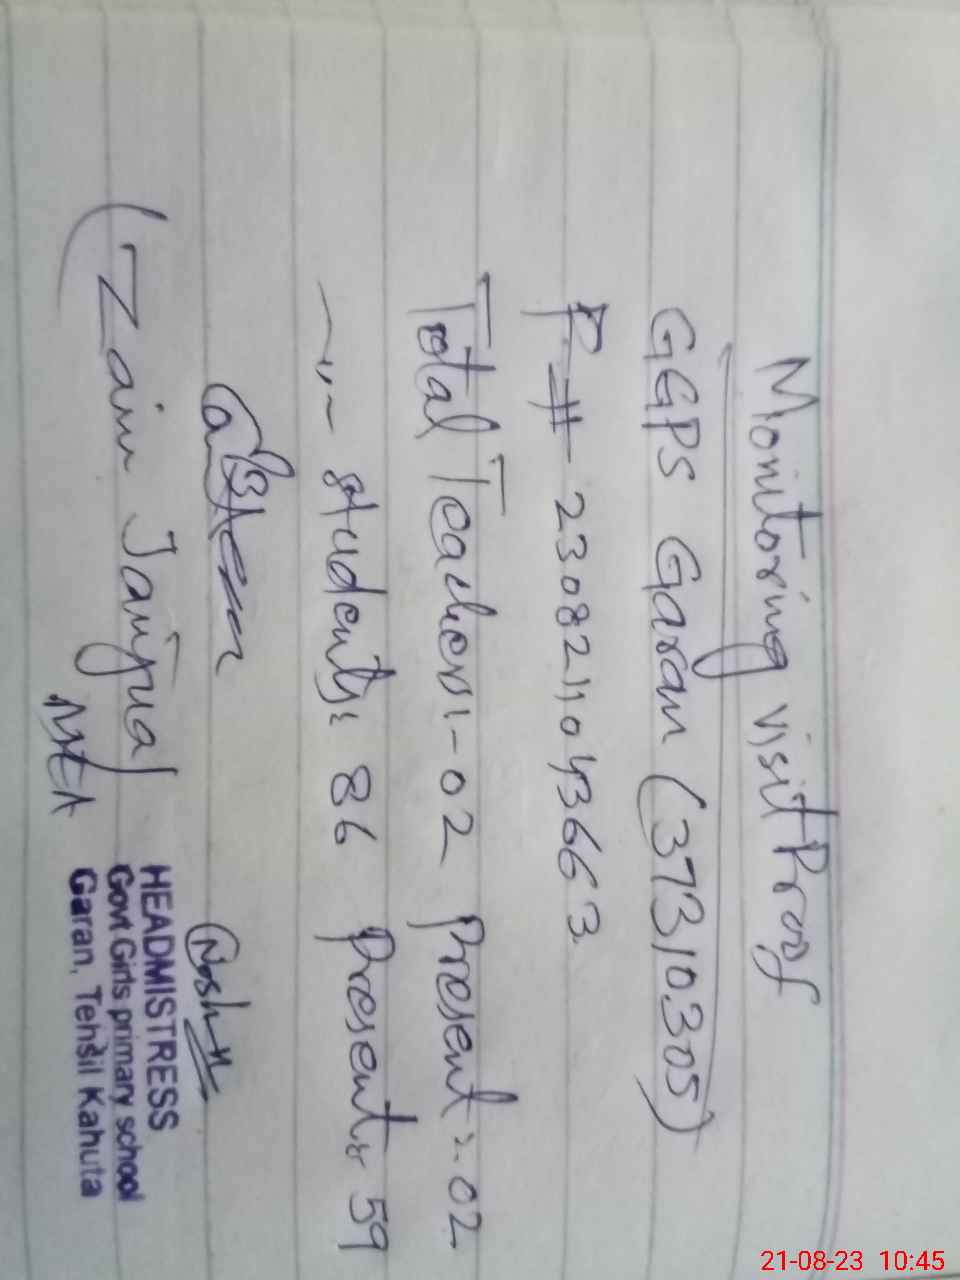 Monitoring visit Proof
GGPS Garan (37310305)
P.# 23082110 4366 3
Total Teachers:-02 Present:-02
~ ,, ~ students: 86 Presents 59
(Zain Janjua)
MEA
HEADMISTRESS
Govt Girls primary school
Garan, Tehsil Kahuta
21-08-23 10:45